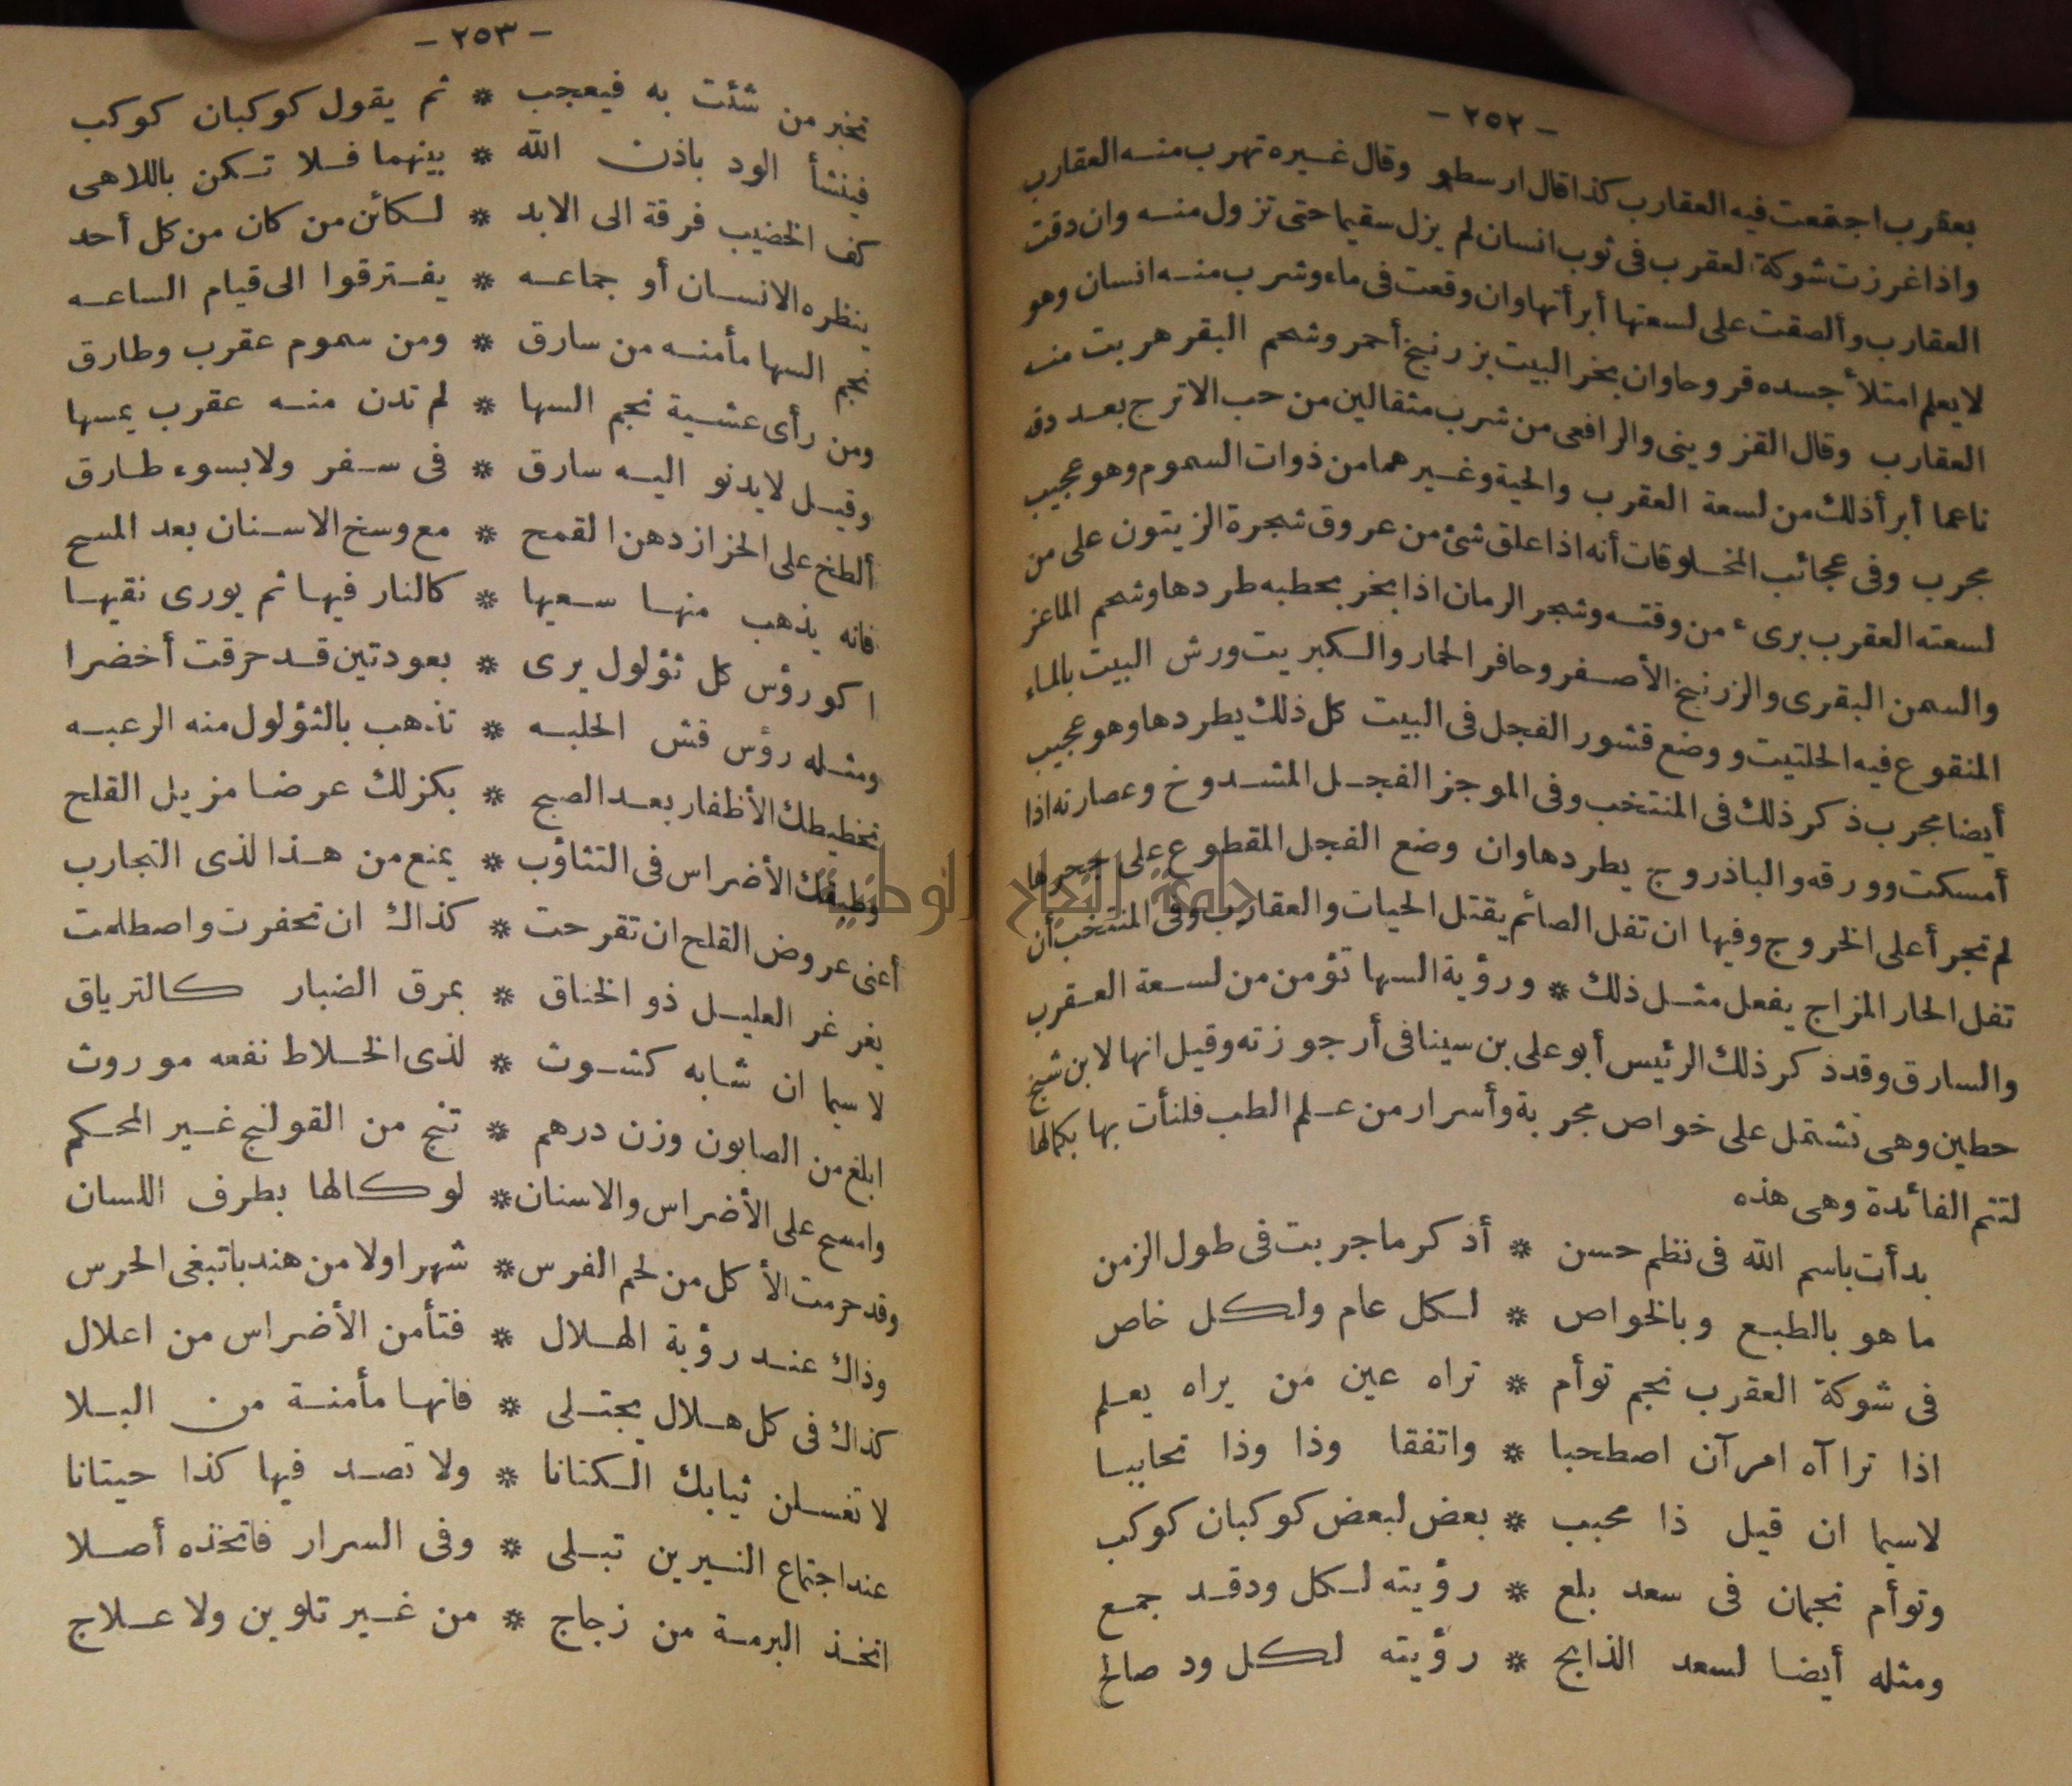 - ٢٥٢ -
بعقرب اجتمعت فيه العقارب كذا قال ارسطو وقال غيره تهرب منه العقارب
واذا غرزت شوكة العقرب فى ثوب انسان لم يزل سقيما حتى تزول منه وان دقت
العقارب وألصقت على لسعتها أبرأتها وان وقعت فى ماء وشرب منه انسان وهو
لا يعلم امتلأ جسده قروحا وان بخر البيت بزرنيخ أحمر وشحم البقر هربت منه
العقارب وقال القزوينى والرافعى من شرب مثقالين من حب الاترج بعد دقه
ناعما أبرأ ذلك من لسعة العقرب والحية وغيرهما من ذوات السموم وهو عجيب
مجرب وفى عجائب المخلوقات أنه اذا علق شئ من عروق شجرة الزيتون على من
لسعته العقرب برىء من وقته وشجر الرمان اذا بخر بحطبه طردها وشحم الماعز
والسمن البقرى والزرنيخ الأصفر وحافر الحمار والكبريت ورش البيت بالماء
المنقوع فيه الحلتيت ووضع قشور الفجل فى البيت كل ذلك يطردها وهو عجيب
أيضا مجرب ذكر ذلك فى المنتخب وفى الموجز الفجل المشدوخ وعصارته اذا
أمسكت وورقه والباذروج يطردها وان وضع الفجل المقطوع على جحرها
لم تجرأ على الخروج وفيها ان تفل الصائم يقتل الحيات والعقارب وفى المنتخب أن
تفل الحار المزاج يفعل مثل ذلك * ورؤية السها تؤمن من لسعة العقرب
والسارق وقد ذكر ذلك الرئيس أبو على بن سينا فى أرجوزته وقيل انها لابن شيخ
حطين وهى تشتمل على خواص مجربة وأسرار من علم الطب فلنأت بها بكمالها
لتتم الفائدة وهى هذه
بدأت باسم الله فى نظم حسن * أذكر ما جربت فى طول الزمن
ما هو بالطبع وبالخواص * لكل عام ولكل خاص
فى شوكة العقرب نجم توأم * تراه عين من يراه يعلم
اذا تراآه امرآن اصطحبا * واتفقا وذا وذا تحاببا
لاسيما ان قيل ذا محبب * بعض لبعض كوكبان كوكب
وتوأم نجمان فى سعد بلع * رؤيته لكل ود قد جمع
ومثله أيضا لسعد الذابح * رؤيته لكل ود صالح
- ٢٥٣ -
تخبر من شئت به فيعجب * ثم يقول كوكبان كوكب
فينشأ الود باذن الله * بينهما فلا تكن باللاهى
كف الخضيب فرقة الى الابد * لكائن من كان من كل أحد
ينظره الانسان أو جماعه * يفترقوا الى قيام الساعه
نجم السها مأمنه من سارق * ومن سموم عقرب وطارق
ومن رأى عشية نجم السها * لم تدن منه عقرب يمسها
وقيل لا يدنو اليه سارق * فى سفر ولا بسوء طارق
ألطخ على الحزاز دهن القمح * مع وسخ الاسنان بعد المسح
فانه يذهب منها سعيها * كالنار فيها ثم يورى نقيها
اكو رؤس كل ثؤلول يرى * بعودتين قد حرقت أخضرا
ومثله رؤس قش الحلبه * تذهب بالثؤلول منه الرعبه
تخطيطك الأظفار بعد الصبح * بكزلك عرضا مزيل القلح
وطبقك الأضراس فى التثاؤب * يمنع من هذا لذى التجارب
أعنى عروض القلح ان تقرحت * كذاك ان تحفرت واصطلمت
يغرغر العليل ذو الخناق * بمرق الضبار كالترياق
لاسيما ان شابه كشوث * لذى الخلاط نفعه موروث
ابلغ من الصابون وزن درهم * تنج من القولنج غير المحكم
وامسح على الأضراس والاسنان * لوكالها بطرف اللسان
وقد حرمت الأكل من لحم الفرس * شهرا ولا من هندبا تبغى الحرس
وذاك عند رؤية الهلال * فتأمن الأضراس من اعلال
كذاك فى كل هلال يجتلى * فانها مأمنة من البلا
لا تغسلن ثيابك الكتانا * ولا تصد فيها كذا حيتانا
عند اجتماع النيرين تبلى * وفى السرار فاتخذه أصلا
اتخذ البرمة من زجاج * من غير تلوين ولا علاج
جامعة النجاح الوطنية